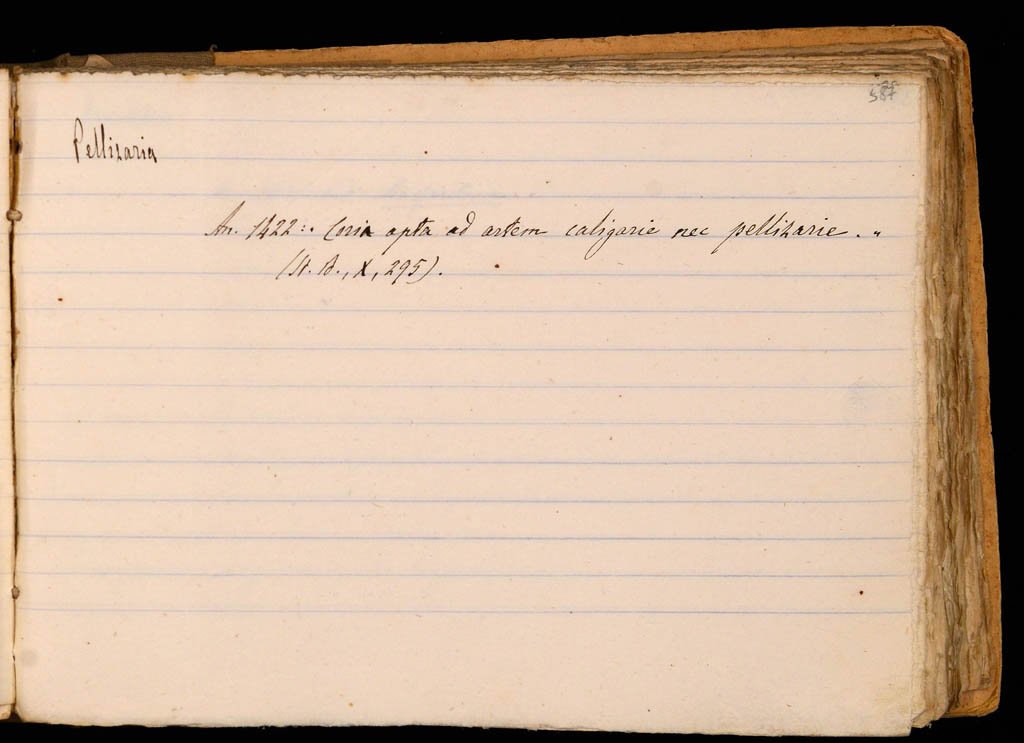 587
Pellizaria
An. 1422: . Coria apta ad artem caligarie nec pellizarie . "
(St. B., X, 295).